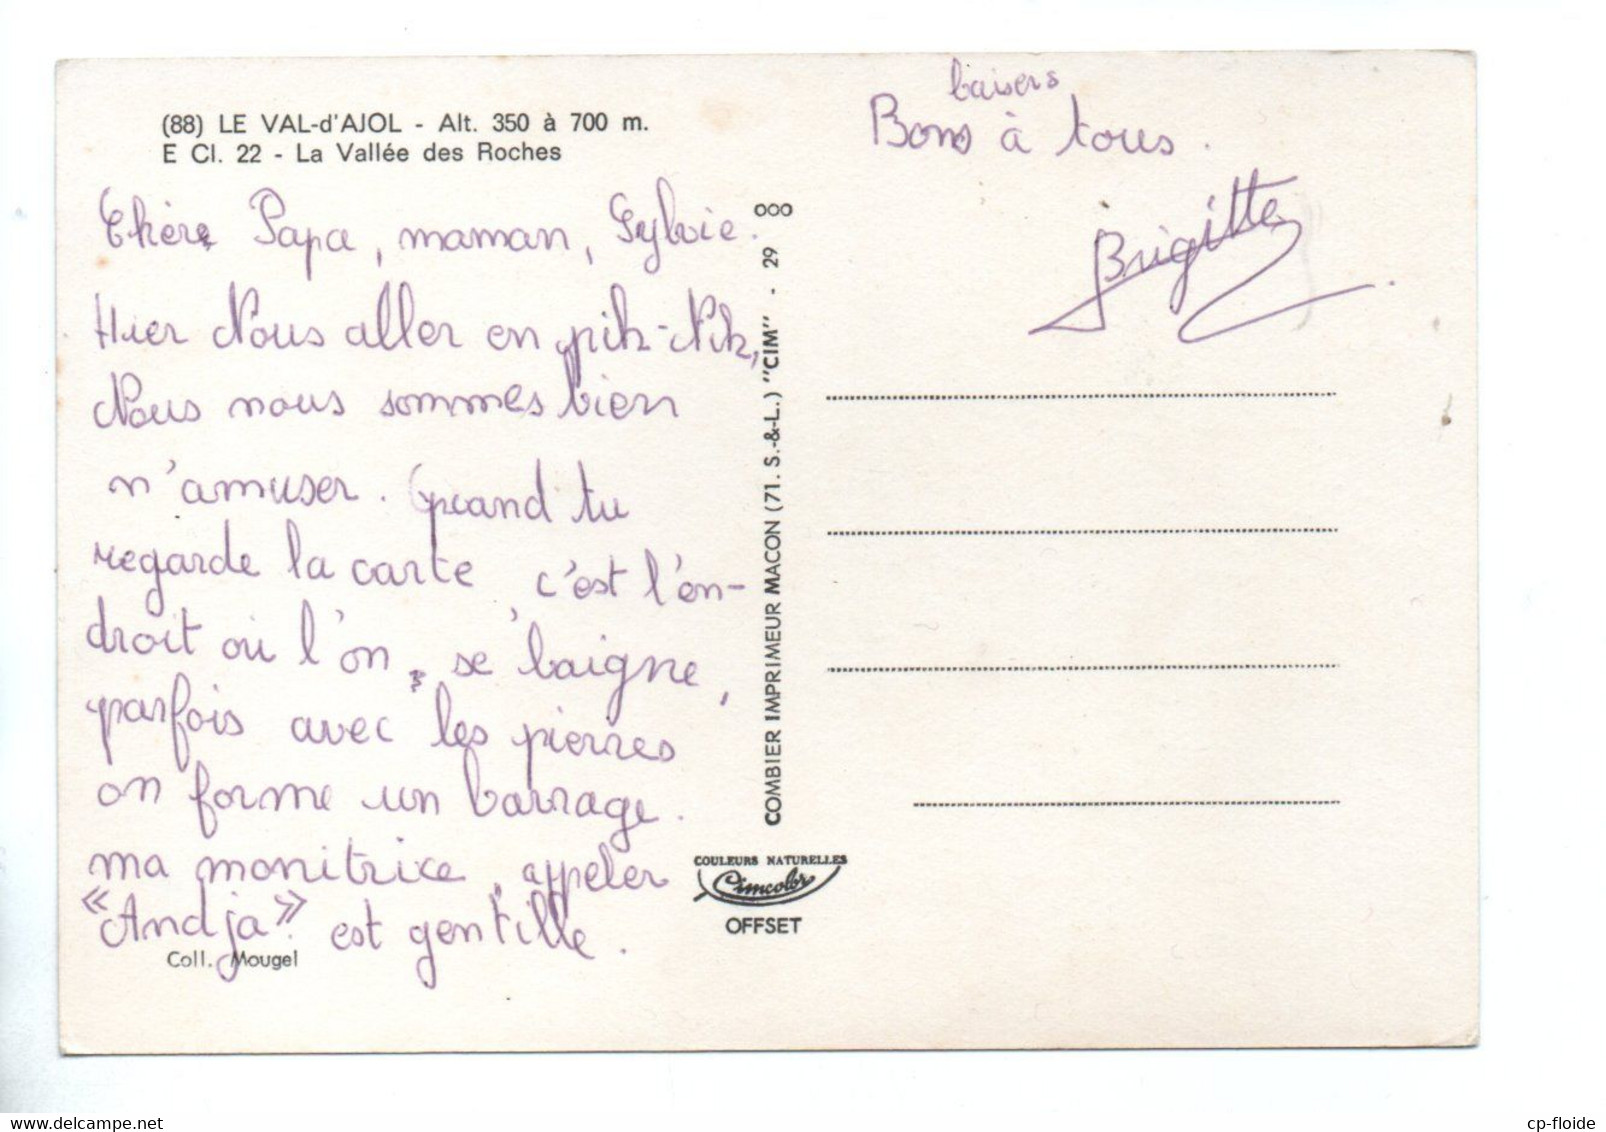 (88) LE VAL-d'AJOL - Alt. 350 à 700 m.
E Cl. 22 - La Vallée des Roches
Chère Papa, maman, Sylvie.
Hier Nous aller en pik-Nik,
Nous nous sommes bien
n'amuser. Quand tu
regarde la carte, c'est l'en-
droit où l'on, se baigne,
parfois avec les pierres
on forme un barrage.
ma monitrice, appeler
«Andja» est gentille.
Coll. Mougel
COMBIER IMPRIMEUR MACON (71. S.-&-L.) "CIM" - 29 000
COULEURS NATURELLES
Cimcolor
OFFSET
baisers
Bons à tous.
Brigitte
cp-floide